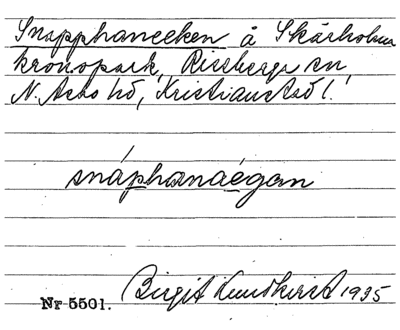 Snapphaneeken å Skärholma
kronopark, Riseberga sn,
N. Åsbo hd, Kristianstad l.
snáphanaégan
Nr 5501. Birgit Lundkvist 1935